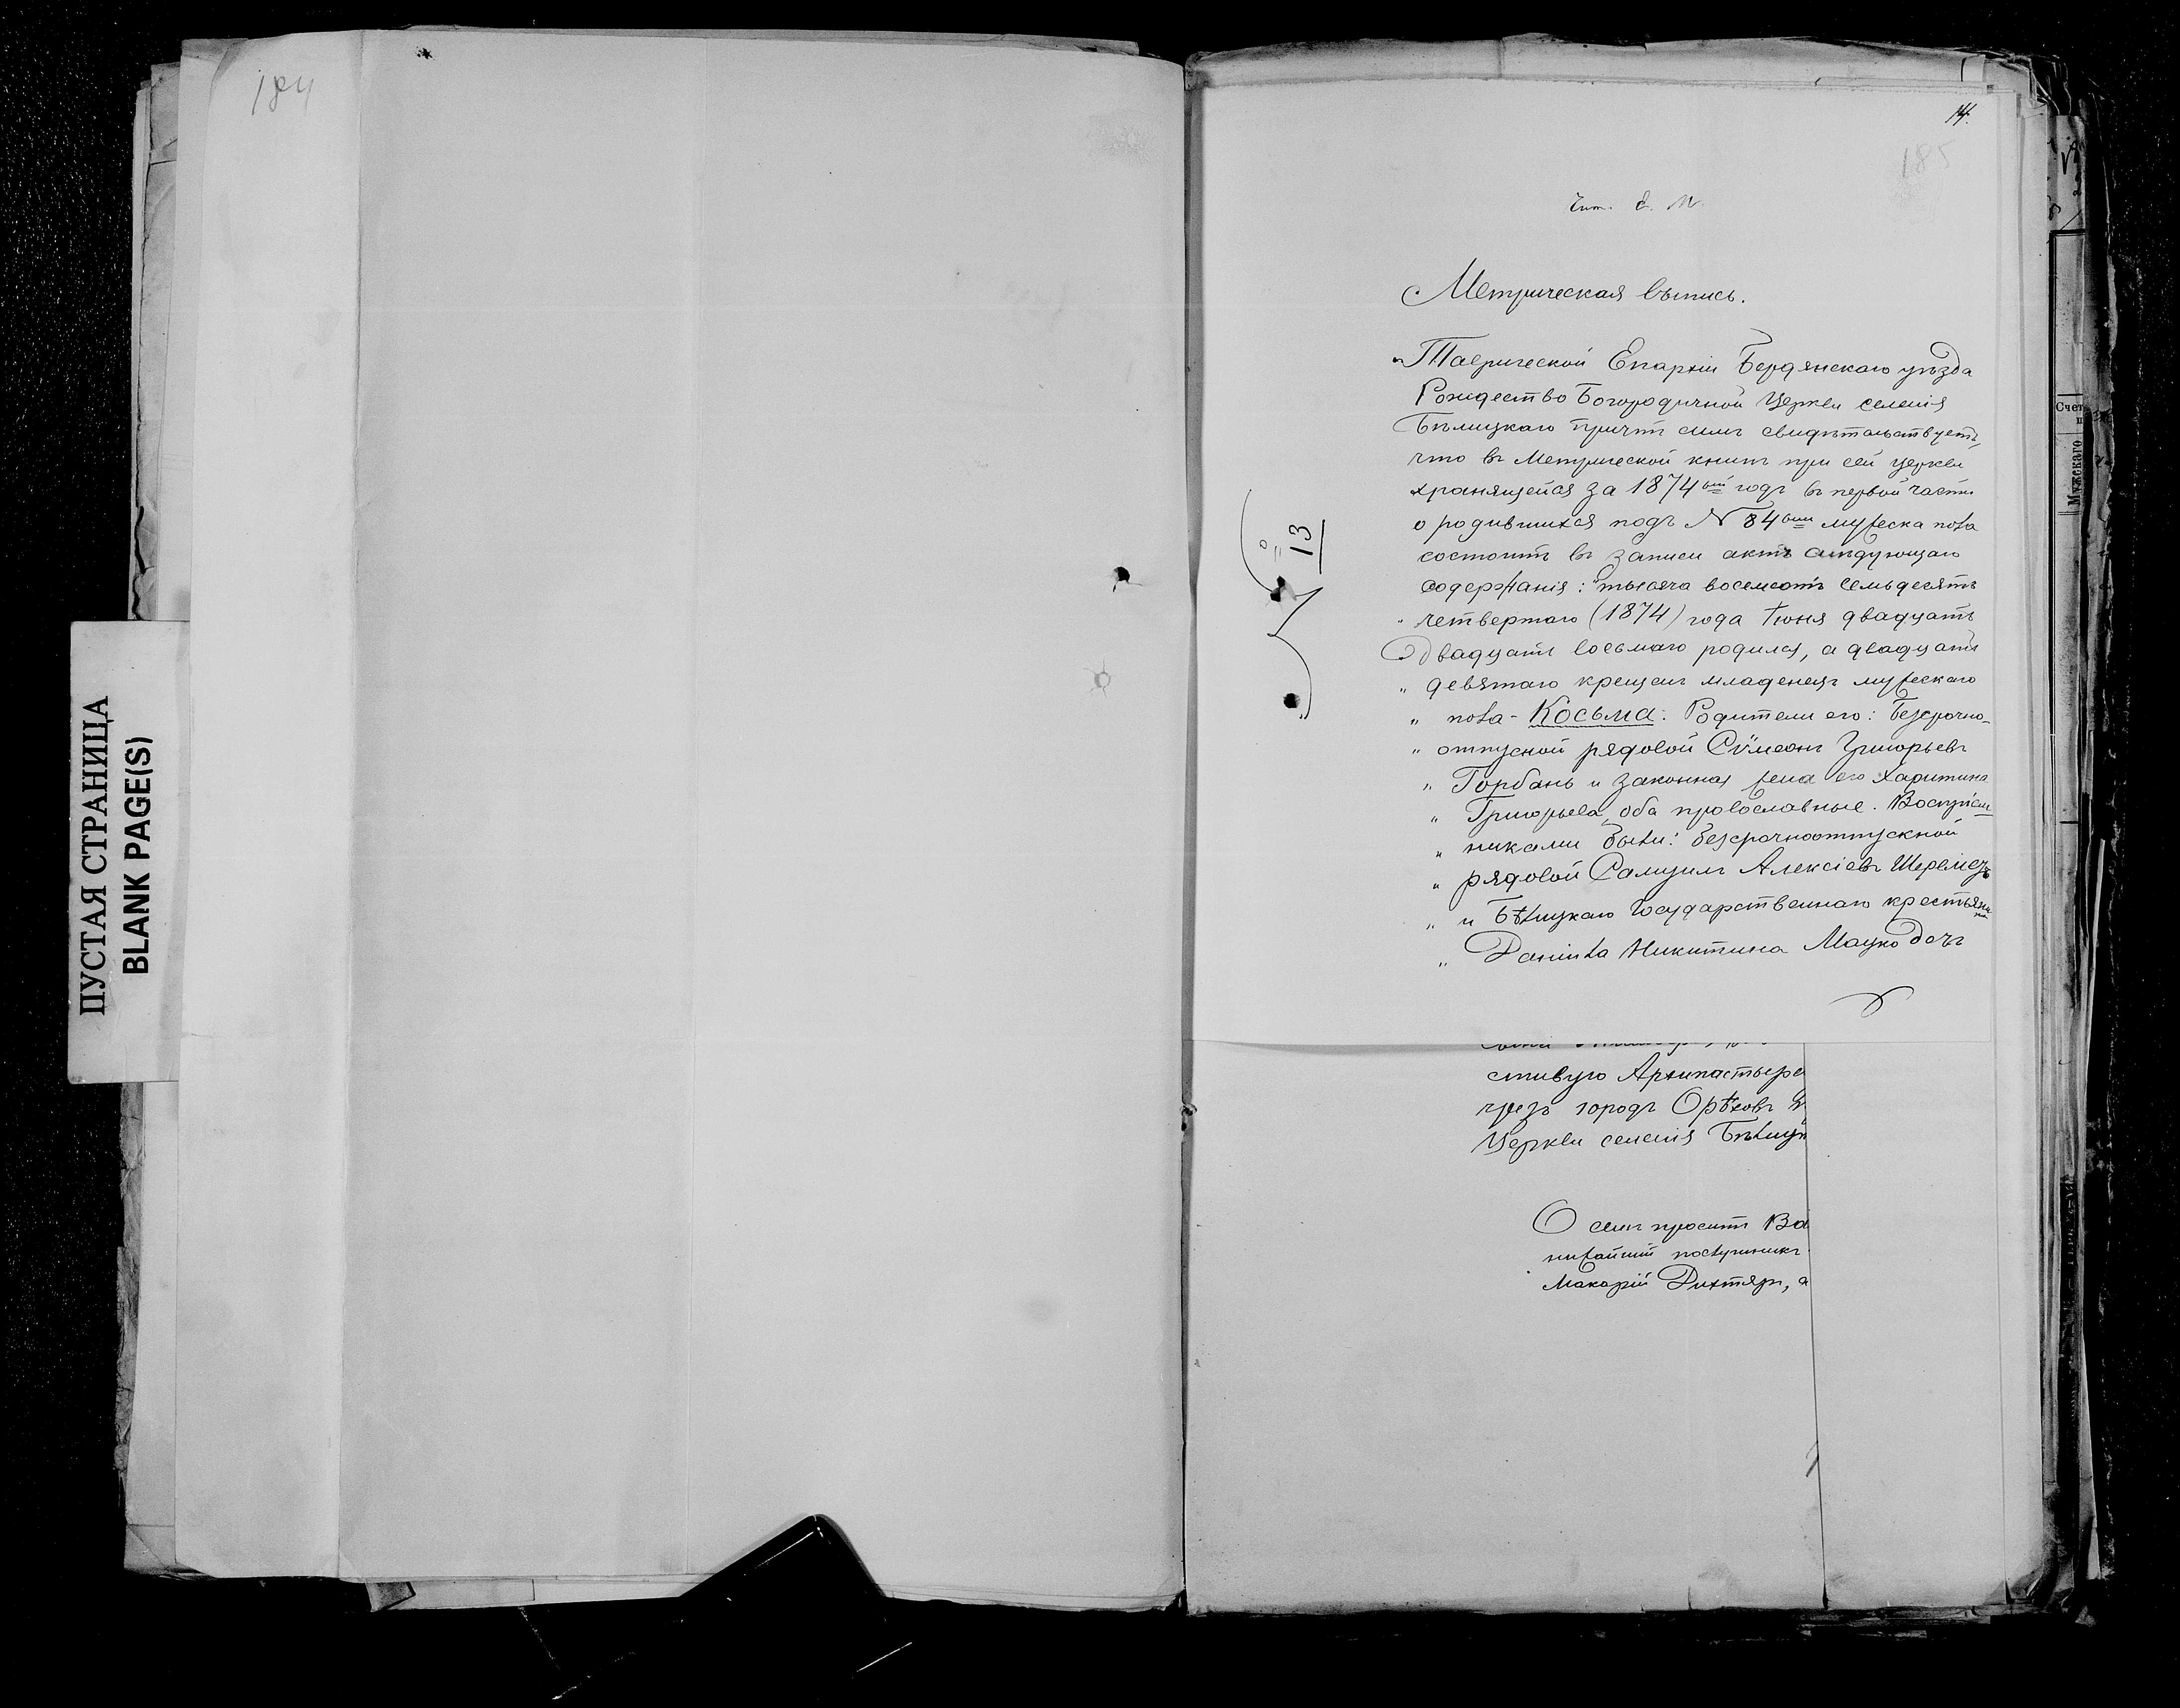 184
ПУСТАЯ СТРАНИЦА
BLANK PAGE(S)
14.
185
13
Метрическая выпись.
„Таврической Епархіи Бердянскаго уѣзда
Рождество Богородичной Церкви селенія
Бѣлицкаго причтъ симъ свидѣтельствуетъ,
что въ Метрической книгѣ при сей церкви
хранящейся за 1874ый годъ въ первой части
о родившихся подъ № 84ымъ мужеска пола
состоитъ въ записи актъ слѣдующаго
содержанія: "тысяча восемсотъ семьдесятъ
четвертаго (1874) года Іюня двадцать
Двадцать восьмаго родился, а двадцать
„ девятаго крещенъ младенецъ мужескаго
„ пола - Косьма. Родители его: Безсрочно-
„ отпускной рядовой Сѵмеонъ Григорьевъ
„ Горбань и законная жена его Харитина
„ Григорьева, оба провославные. Воспріем-
„ никами были: безсрочноотпускной
„ рядовой Самуилъ Алексіевъ Шереметъ
„ и Бѣлицкаго Государственнаго крестьянина
„ Даніила Никитина Мацко дочь
стивую Архипастырс
чрезъ городъ Орѣховъ
Церкви селенія Бѣлиц
О семъ проситъ Ва
нижайшій послушникъ
Макарій Дихтяръ, а
Счет
Мужскаго